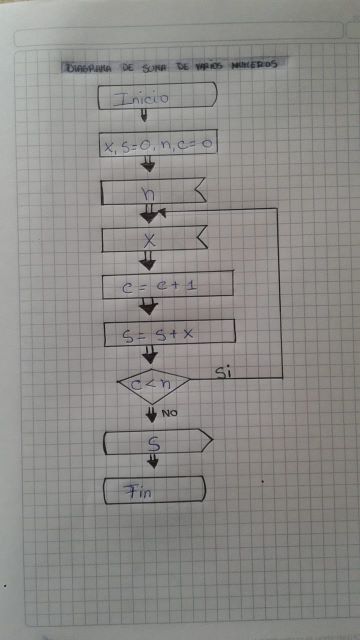 DIAGRAMA DE SUMA DE VARIOS NUMEROS
Inicio
x, s=0, n, c=0
n
x
c = c + 1
s = s + x
c < n
Si
NO
S
Fin